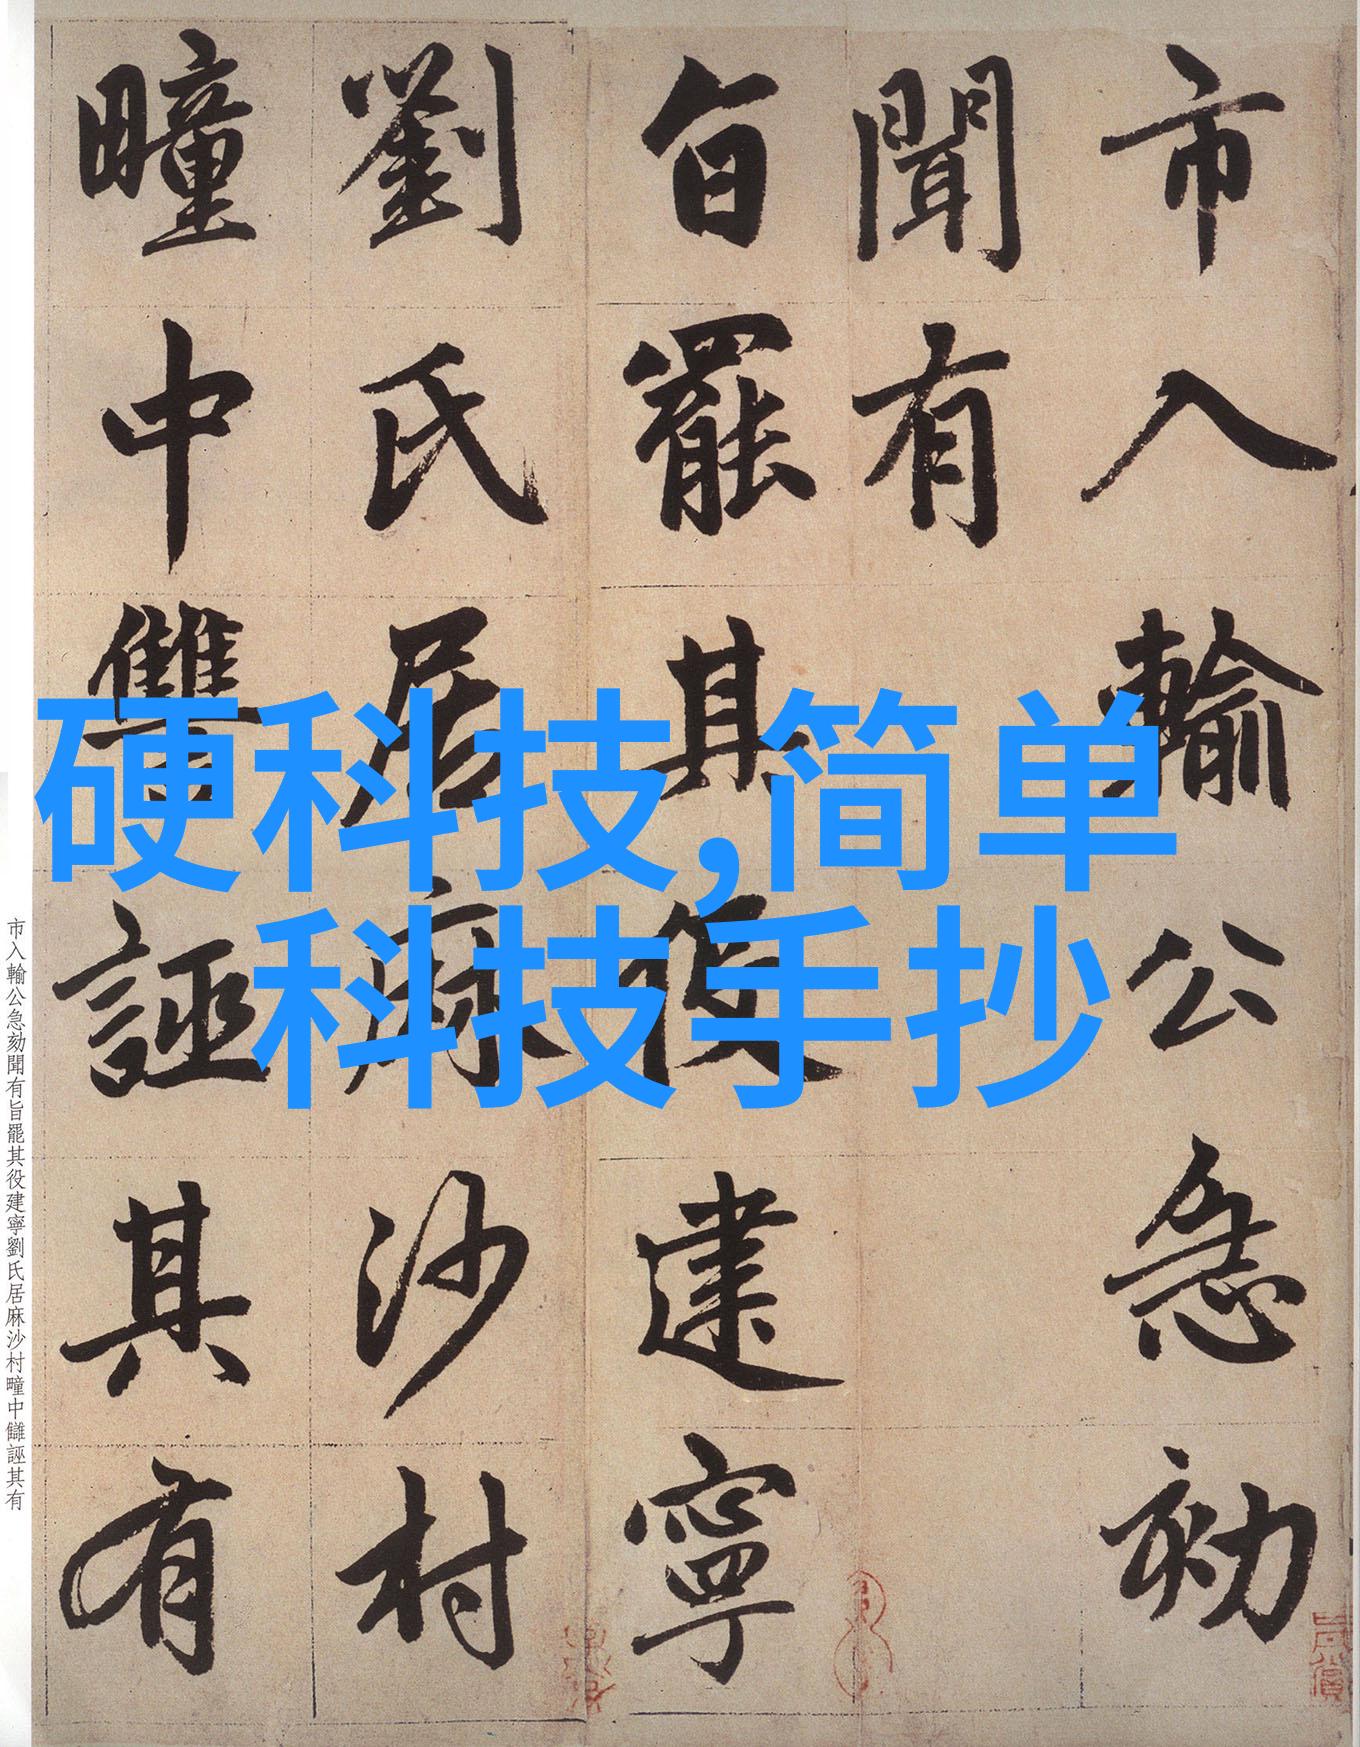 市入輸公急劾
聞有
旨罷其役建寧
劉氏居麻沙村
疃中讐誣其有
硬科技,简单
科技手抄
市入輸公急劾聞有旨罷其役建寧劉氏居麻沙村疃中讎誣其有